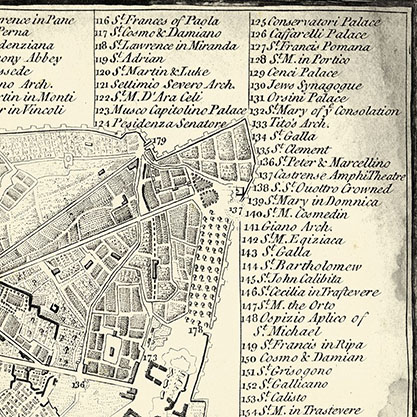 rence in Pane
Perna
denziana
ony Abbey
ssede
no Arch.
tin in Monti
r in Vincoli
116 St. Frances of Paola
117 St. Cosmo & Damiano
118 St. Lawrence in Miranda
119 St. Adrian
120 St. Martin & Luke
121 Settimio Severo Arch.
122 St. M. D'Ara Celi
123 Museo Capitolino Palace
124 Residenza Senatore
125 Conservatori Palace
126 Caffarelli Palace
127 St. Francis Pomana
128 St. M. in Portico
129 Cenci Palace
130 Jews Synagogue
131 Orsini Palace
132 St. Mary of ye Consolation
133 Tito's Arch.
134 St. Galla
135 St. Clement
136 St. Peter & Marcellino
137 Castrense AmphiTheatre
138 S.St. Quottro Crowned
139 St. Mary in Domnica
140 St. M. Cosmedin
141 Giano Arch.
142 St. M. Egiziaca
143 St. Galla
144 St. Bartholomew
145 St. John Calibita
146 St. Cecilia in Trastevere
147 St. M. the Orto
148 Ospizio Aplico of
St. Michael
149 St. Francis in Ripa
150 Cosmo & Damian
151 St. Grisogono
152 St. Gallicano
153 St. Calisto
154 St. M. in Trastevere
179
137
178
173
136